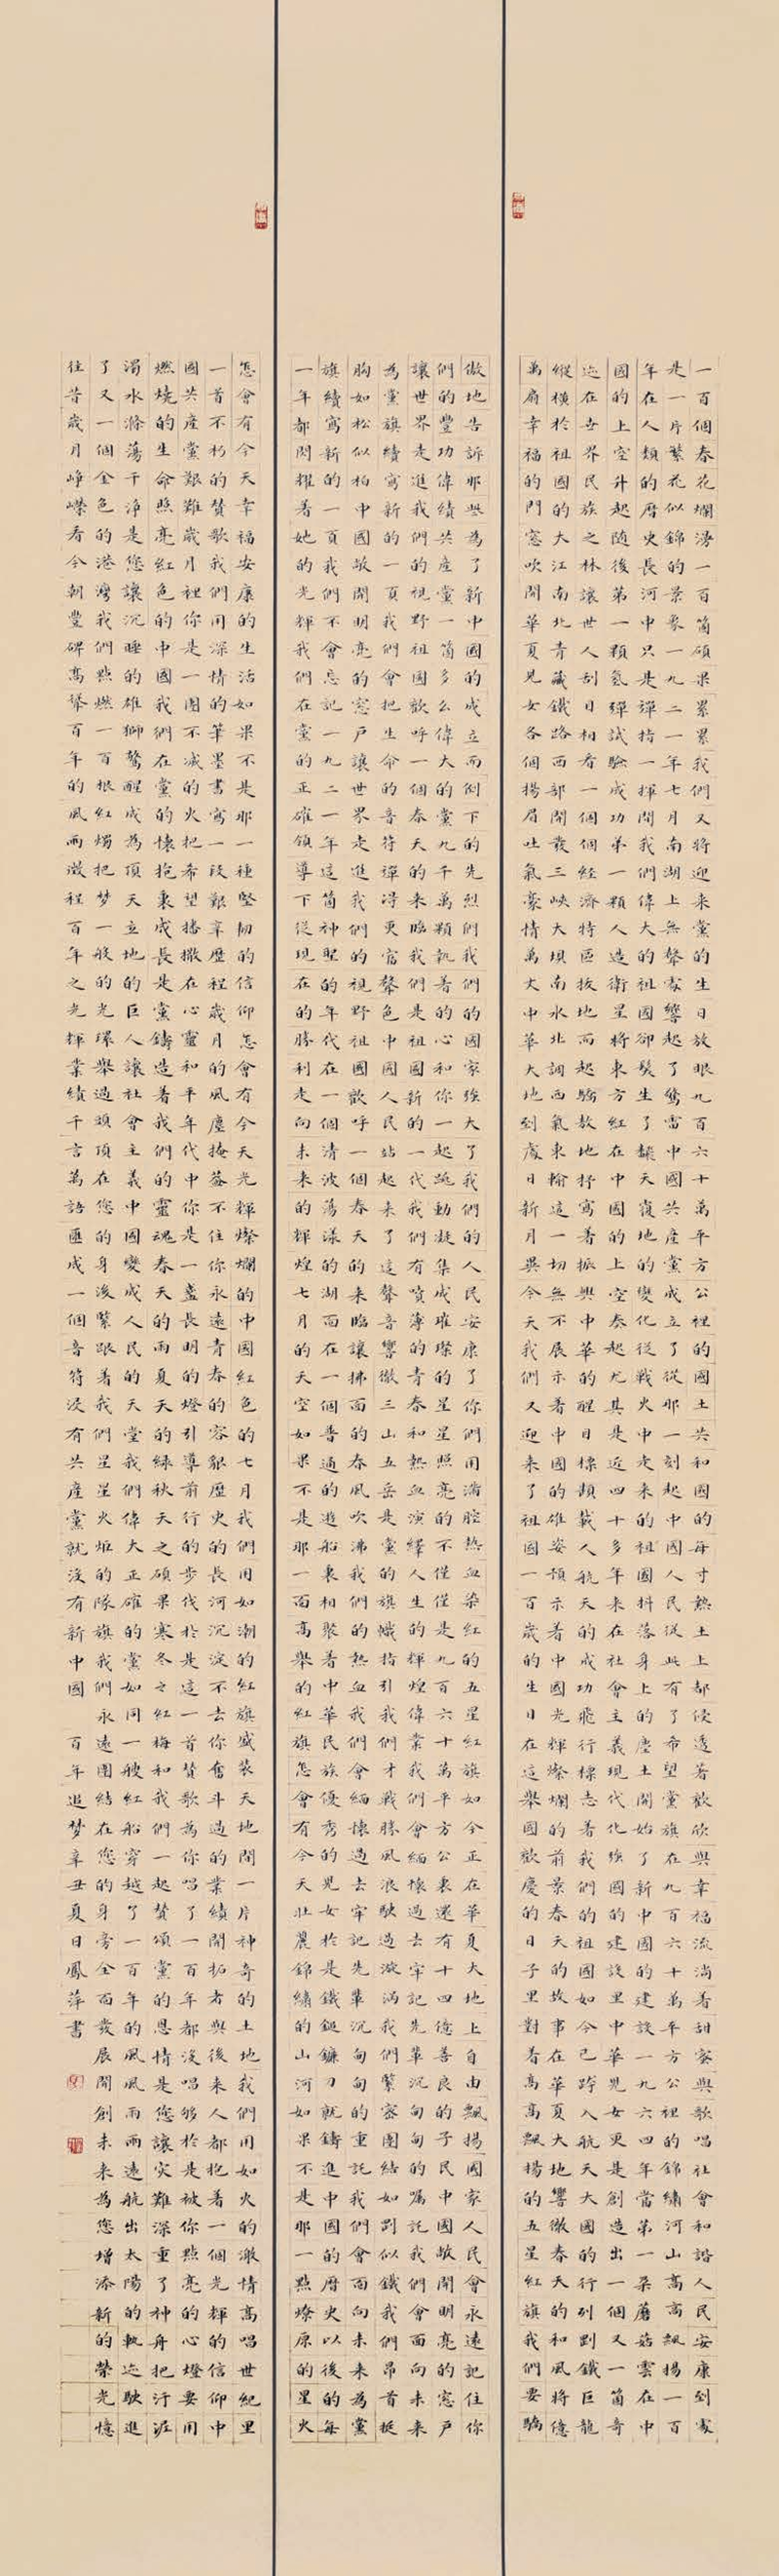 一百個春花爛漫一百箇碩果累累我們又將迎来黨的生日放眼九百六十萬平方公裡的國土共和國的每寸熱土上都侵透著歡欣與幸福流淌着甜蜜與歌唱社會和諧人民安康到處
是一片繁花似錦的景象一九二一年七月南湖上無聲處響起了驚雷中國共産黨成立了從那一刻起中國人民從此有了希望黨旗在九百六十萬平方公裡的錦繡河山高高飄揚一百
年在人類的曆史長河中只是彈指一揮間我們偉大的祖國卻髮生了飜天覆地的變化從戰火中走来的祖國抖落身上的塵土開始了新中國的建設一九六四年當第一朵蘑菇雲在中
國的上空升起随後第一顆氢彈試驗成功第一顆人造衛星将東方紅在中國的上空奏起尤其是近四十多年来在社會主義現代化强國的建設里中華兒女更是創造出一個又一箇奇
迹在世界民族之林讓世人刮目相看一個個经濟特區拔地而起騎敖地抒寫着振興中華的醒目標題載人航天的成功飛行標志着我們的祖國如今已跨入航天大國的行列劉鐵巨龍
縱横於祖國的大江南北青藏鐵路西部開發三峡大壩南水北調西氣東輸這一切無不展示著中國的雄姿預示着中國光輝燦爛的前景春天的故事在華夏大地響徹春天的和風將億
萬扇幸福的門窓吹開華夏兒女各個揚眉吐氣豪情萬丈中華大地到處日新月異今天我們又迎来了祖國一百歲的生日在這舉國歡慶的日子里對着高高飄揚的五星紅旗我們要驕
傲地告訴那些為了新中國的成立而倒下的先烈們我們的國家强大了我們的人民安康了你們用滿腔熱血染紅的五星紅旗如今正在華夏大地上自由飄揚國家人民會永遠記住你
們的豐功偉績共産黨一箇多么偉大的黨九千萬顆執着的心和你一起跳動凝集成璀璨的星星照亮的不僅僅是九百六十萬平方公裏還有十四億善良的子民中國敞開明亮的窓戶
讓世界走進我們的視野祖國歡呼一個春天的来臨我們是祖國新的一代我們有噴薄的青春和熱血演繹人生的輝煌偉業我們會緬懷過去牢記先輩沉甸甸的囑託我們會面向未来
為黨旗續寫新的一頁我們會把生命的音符彈得更富聲色中國人民站起来了這聲音響徹三山五岳是黨的旗幟指引我們才戰勝風浪駛過漩渦我們緊密團結如劉似鐵我們昂首挺
胸如松似柏中國敞開明亮的窓戶讓世界走進我們的視野祖國歡呼一個春天的来臨讓拂面的春風吹沸我們的熱血我們會緬懷過去牢記先輩沉甸甸的重託我們會面向未来為黨
旗續寫新的一頁我們不會忘記一九二一年這箇神聖的年代在一個清波蕩漾的湖面在一個普通的遊船裏相聚着中華民族優秀的兒女於是鐵鎚鐮刀就鑄進中國的曆史以後的每
一年都閃耀着她的光輝我們在黨的正確領導下從現在的勝利走向未来的輝煌七月的天空如果不是那一面高舉的紅旗怎會有今天壯麗錦繡的山河如果不是那一點燎原的星火
怎會有今天幸福安康的生活如果不是那一種堅韧的信仰怎會有今天光輝燦爛的中國紅色的七月我們用如潮的紅旗盛裝天地間一片神奇的土地我們用如火的激情高唱世紀里
一首不朽的賛歌我們用深情的筆墨書寫一段艱辛歷程歲月的風塵掩蓋不住你永遠青春的容貌歷史的長河沉淀不去你奮斗過的業績開拓者與後来人都抱着一個光輝的信仰中
國共産黨艱難歲月裡你是一團不滅的火把希望播撒在心靈和平年代中你是一盞長明的燈引導前行的步伐於是這一首賛歌為你唱了一百年都沒唱够於是被你點亮的心燈要用
燃燒的生命照亮紅色的中國我們在黨的懷抱裏成長是黨鑄造著我們的靈魂春天的雨夏天的綠秋天之碩果寒冬之紅梅和我們一起賛頌黨的恩情是您讓灾難深重了神舟把汙涯
濁水滌蕩干淨是您讓沉睡的雄獅驚醒成為頂天立地的巨人讓社會主義中國變成人民的天堂我們偉大正確的黨如同一艘紅船穿越了一百年的風風雨雨遠航出太陽的軌迹駛進
了又一個金色的港灣我們點燃一百根紅燭把梦一般的光環舉過頭頂在您的身後緊跟着我們星星火炬的隊旗我們永遠團結在您的身旁全面發展開創未来為您增添新的榮光憶
往昔歲月峥嶸看今朝豐碑高舉百年的風雨激程百年之光輝業績千言萬語匯成一個音符没有共産黨就没有新中國 百年追梦辛丑夏日鳳萍書